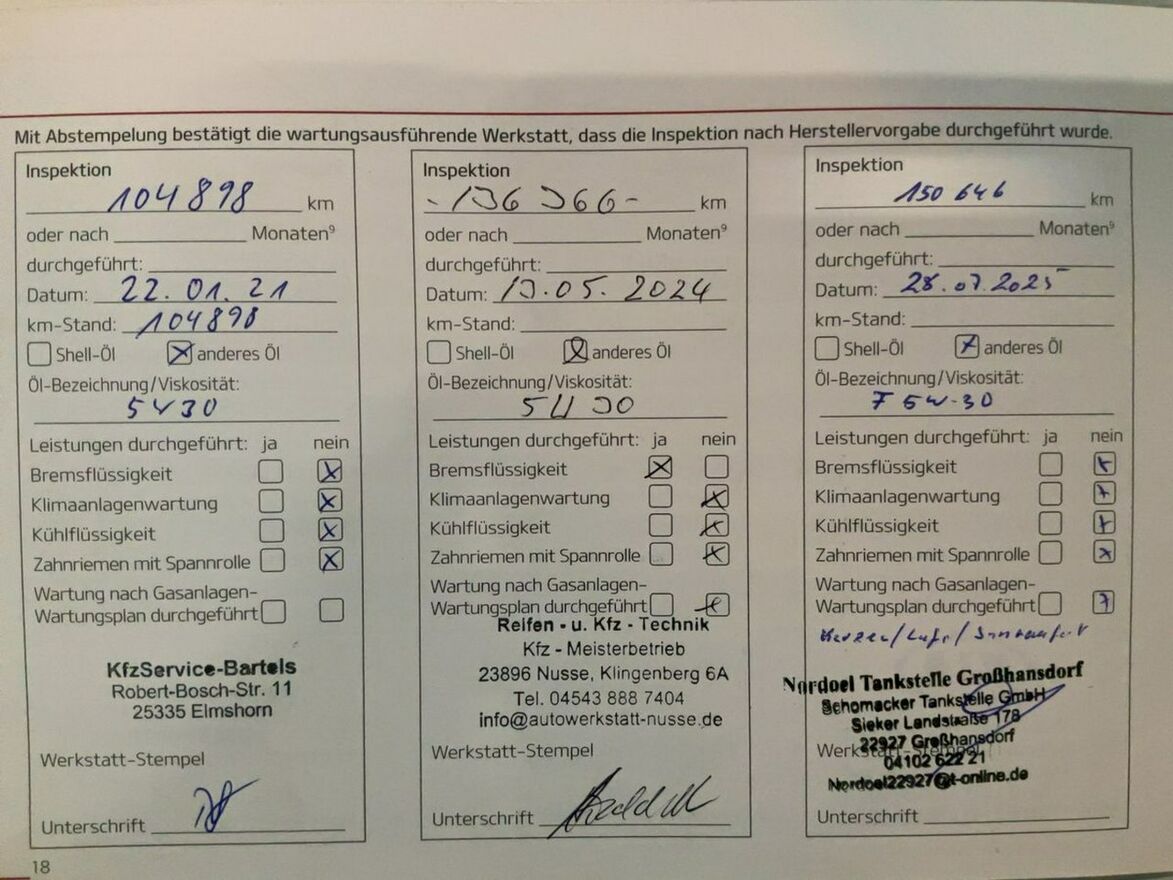 Mit Abstempelung bestätigt die wartungsausführende Werkstatt, dass die Inspektion nach Herstellervorgabe durchgeführt wurde.
Inspektion
104898 km
oder nach Monaten⁹
durchgeführt:
Datum: 22.01.21
km-Stand: 104898
Shell-Öl anderes Öl
Öl-Bezeichnung/Viskosität:
5W30
Leistungen durchgeführt: ja nein
Bremsflüssigkeit
Klimaanlagenwartung
Kühlflüssigkeit
Zahnriemen mit Spannrolle
Wartung nach Gasanlagen-
Wartungsplan durchgeführt
KfzService-Bartels
Robert-Bosch-Str. 11
25335 Elmshorn
Werkstatt-Stempel
Unterschrift
Inspektion
-136 366- km
oder nach Monaten⁹
durchgeführt:
Datum: 13.05.2024
km-Stand:
Shell-Öl anderes Öl
Öl-Bezeichnung/Viskosität:
5W30
Leistungen durchgeführt: ja nein
Bremsflüssigkeit
Klimaanlagenwartung
Kühlflüssigkeit
Zahnriemen mit Spannrolle
Wartung nach Gasanlagen-
Wartungsplan durchgeführt
Reifen - u. Kfz - Technik
Kfz - Meisterbetrieb
23896 Nusse, Klingenberg 6A
Tel. 04543 888 7404
info@autowerkstatt-nusse.de
Werkstatt-Stempel
Unterschrift
Inspektion
150 646 km
oder nach Monaten⁹
durchgeführt:
Datum: 28.07.2025
km-Stand:
Shell-Öl anderes Öl
Öl-Bezeichnung/Viskosität:
F 5W-30
Leistungen durchgeführt: ja nein
Bremsflüssigkeit
Klimaanlagenwartung
Kühlflüssigkeit
Zahnriemen mit Spannrolle
Wartung nach Gasanlagen-
Wartungsplan durchgeführt
Kerzen/Luft/
Nordoel Tankstelle Großhansdorf
Schomacker Tankstelle GmbH
Sieker Landstraße 178
22927 Großhansdorf
Werkstatt-Stempel
04102 622 21
Nordoel22927@t-online.de
Unterschrift
18